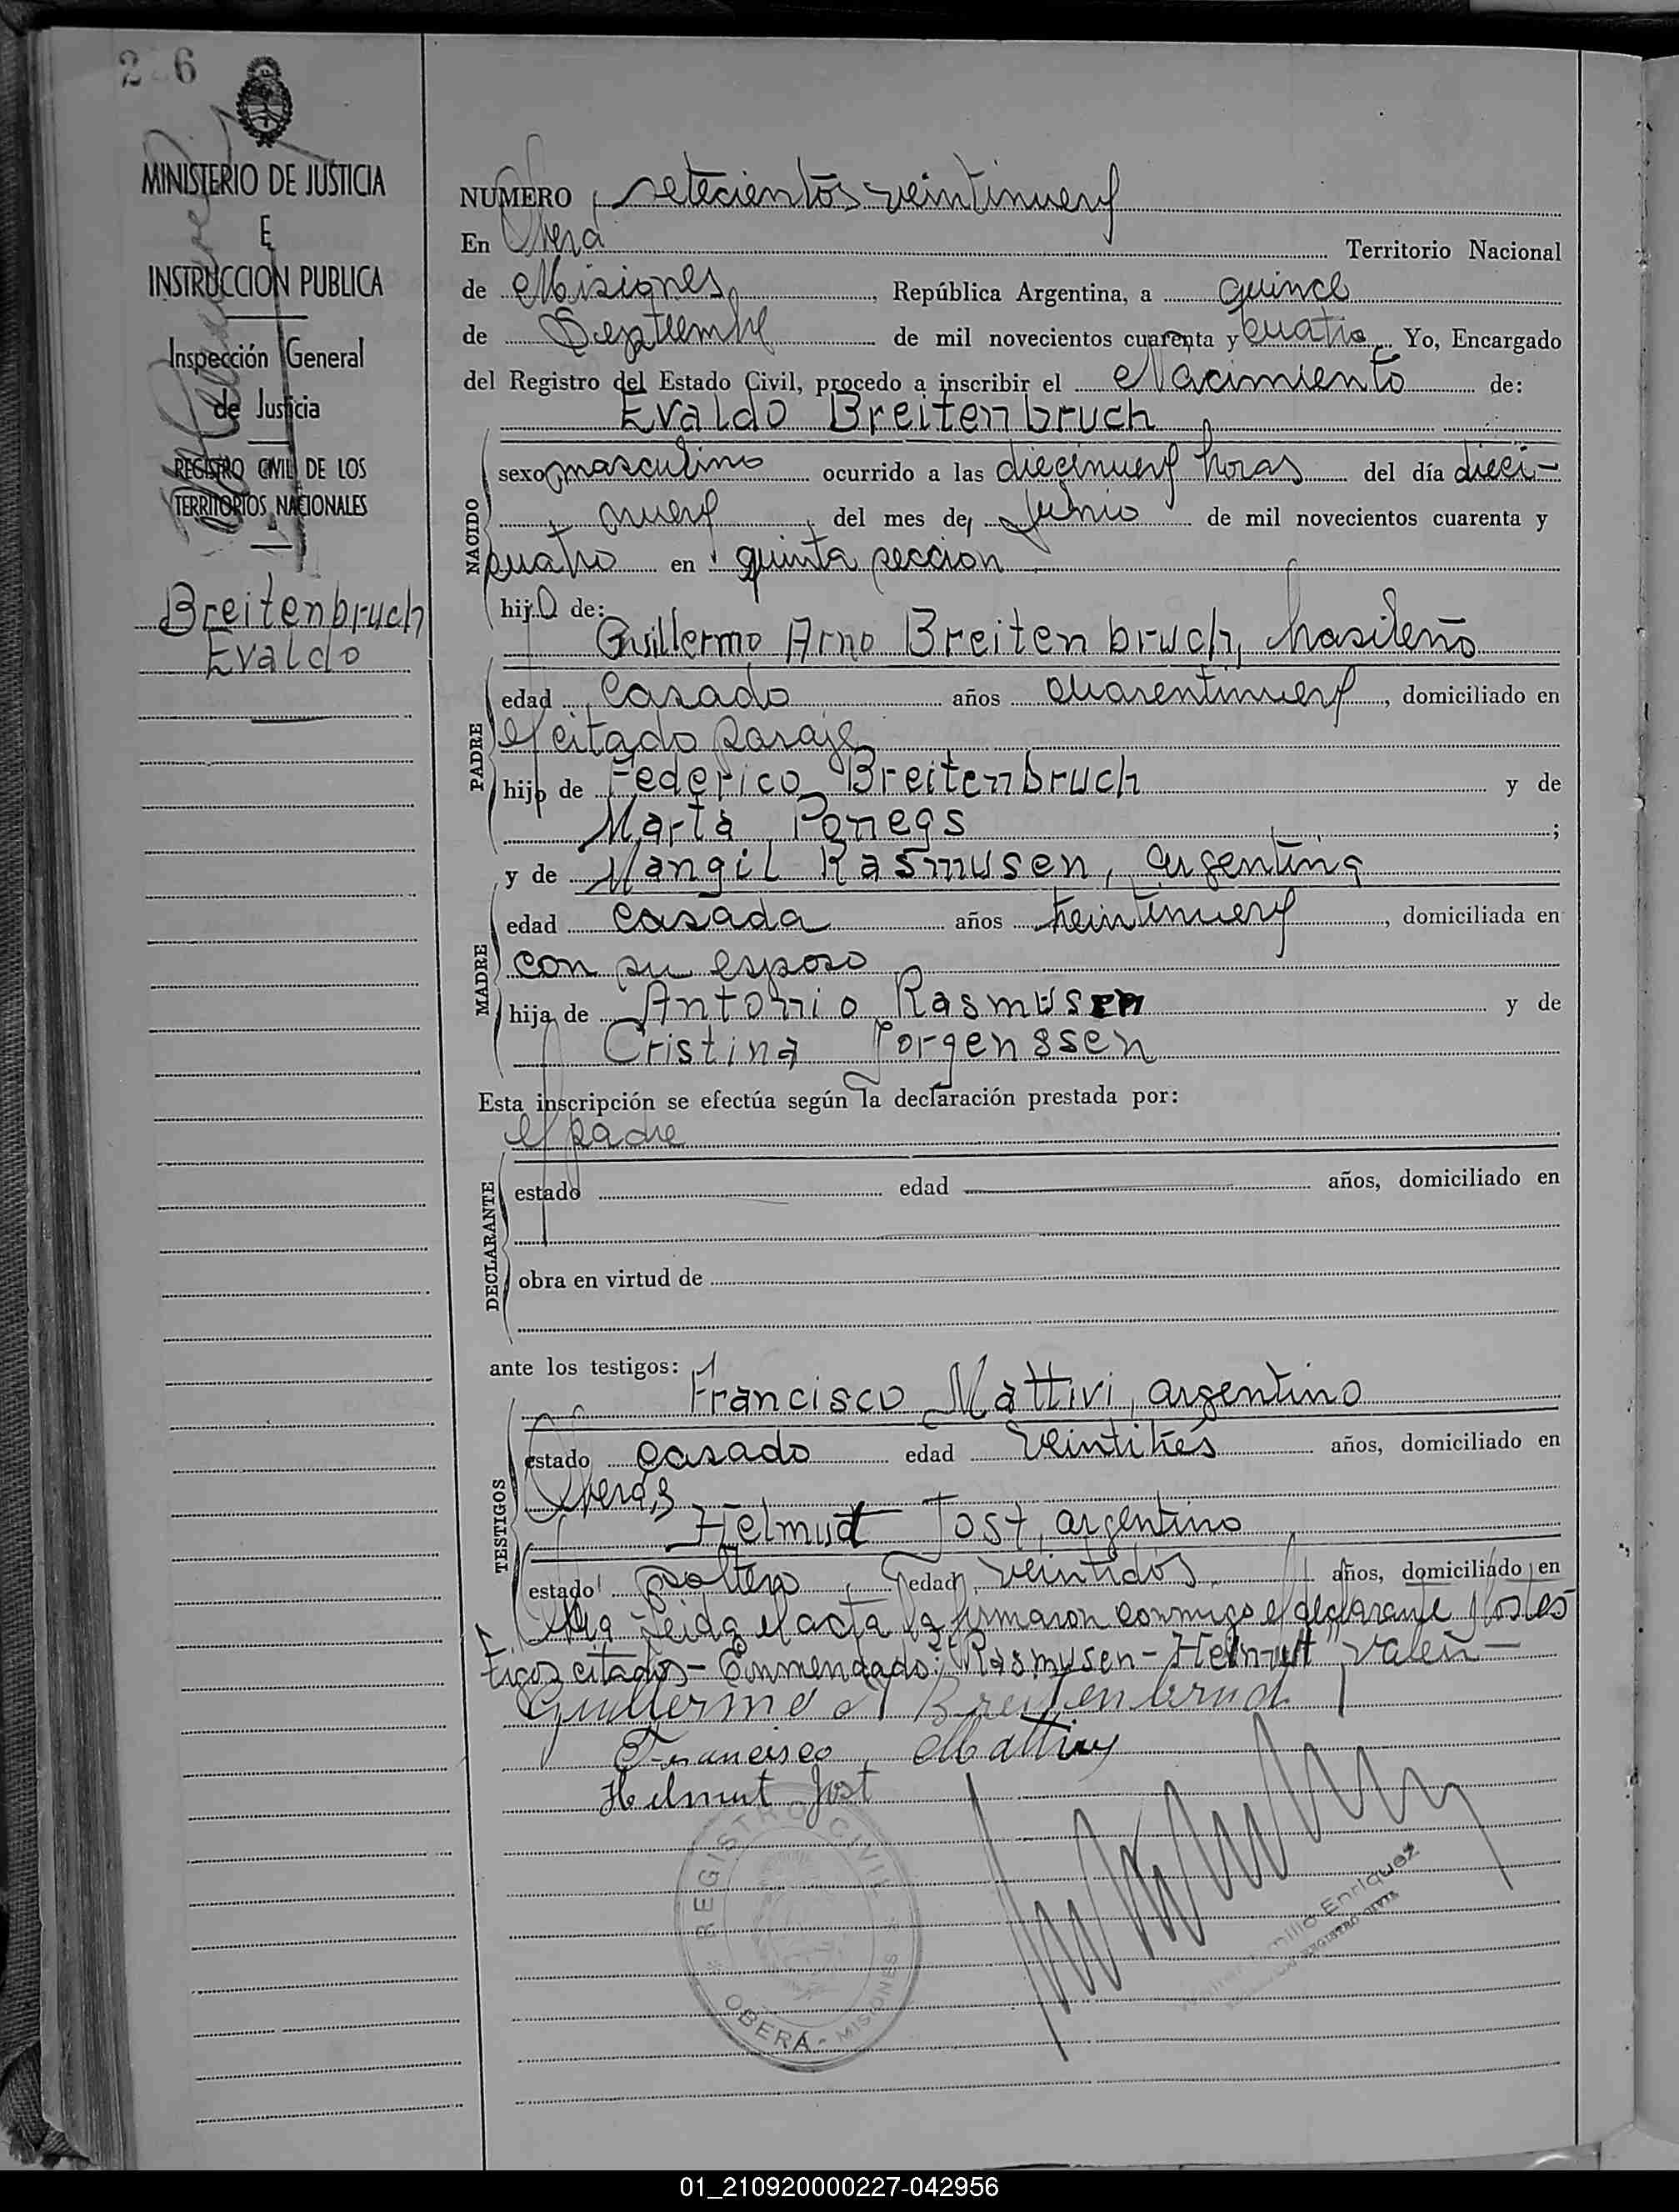 MINISTERIO DE JUSTICIA
E
INSTRUCCION PUBLICA
Inspección General
de Justicia
REGISTRO CIVIL DE LOS
TERRITORIOS NACIONALES
Breitenbruch
Evaldo
NUMERO setecientos veintinueve
En Oberá Territorio Nacional
de Misiones, República Argentina, a quince
de Septiembre de mil novecientos cuarenta y cuatro, Yo, Encargado
del Registro del Estado Civil, procedo a inscribir el Nacimiento de:
Evaldo Breitenbruch
NACIDO
sexo masculino ocurrido a las diecinueve horas del día dieci-
nueve del mes de Junio de mil novecientos cuarenta y
cuatro en quinta seccion
hijo de:
Guillermo Arno Breitenbruch, brasileño
PADRE
edad casado años cuarentinueve, domiciliado en
el citado paraje
hijo de Federico Breitenbruch y de
Marta Ponegs ;
y de Mangil Rasmusen, argentina
MADRE
edad casada años treintinueve, domiciliada en
con su esposo
hija de Antonio Rasmusen y de
Cristina Jorgenssen
Esta inscripción se efectúa según la declaración prestada por:
el padre
DECLARANTE
estado edad años, domiciliado en
obra en virtud de
ante los testigos:
Francisco Mattivi, argentino
TESTIGOS
estado casado edad veintitrés años, domiciliado en
Oberá,
Helmut Jost, argentino
estado soltero, edad veintidos, años, domiciliado en
Leida el acta la firmaron conmigo el declarante y los tes
tigos citados- Enmendado: "Rasmusen-Helmut" Valen-
Guillermo A Breitenbruch
Francisco Mattivi
Helmut Jost
REGISTRO CIVIL
OBERÁ - MISIONES
Emilio Enriquez
REGISTRO CIVIL
01_210920000227-042956